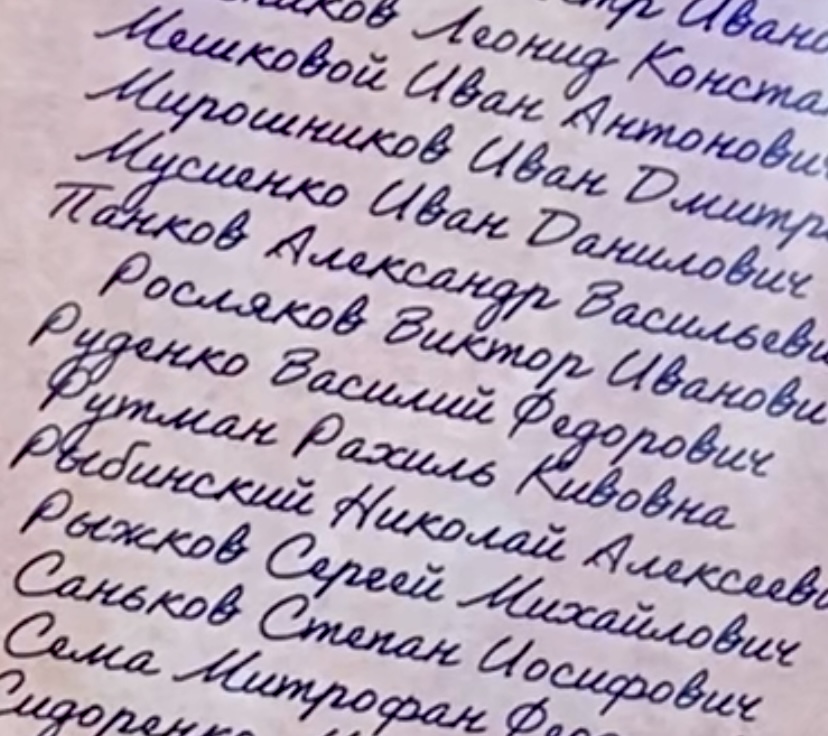 Иван
Леонид Конста
Мешковой Иван Антонович
Мирошников Иван Дмитр
Мусиенко Иван Данилович
Панков Александр Васильеви
Росляков Виктор Иванови
Руденко Василий Федорович
Рутман Рахиль Кивовна
Рыбинский Николай Алексееви
Рыжков Сергей Михайлович
Саньков Степан Иосифович
Сема Митрофан Фед
Сидоренко